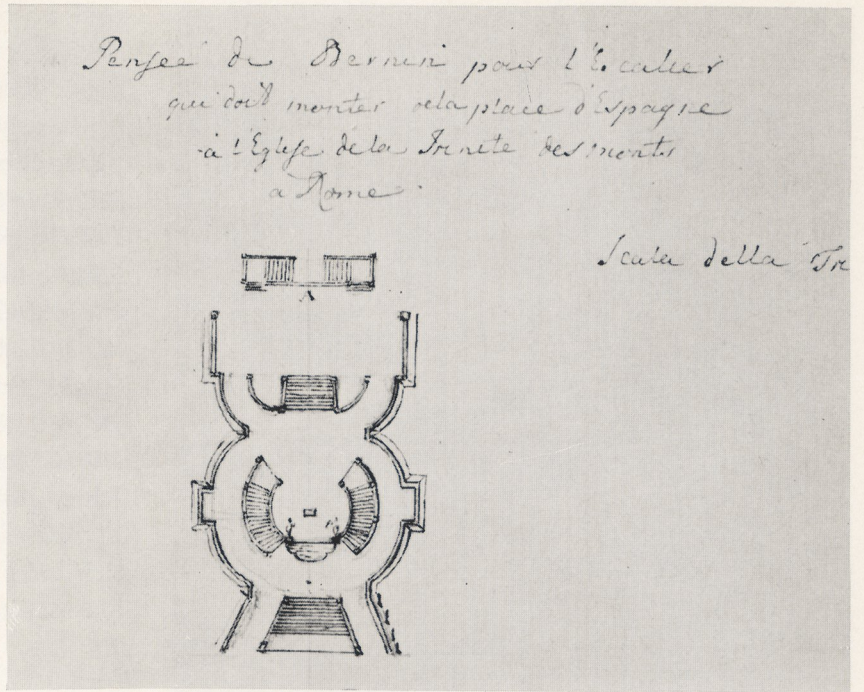 Pensée du Bernin pour l'Escalier
qui doit monter de la place d'Espagne
à l'Eglise de la Trinete des monts
a Rome.
Scala della Tr
A